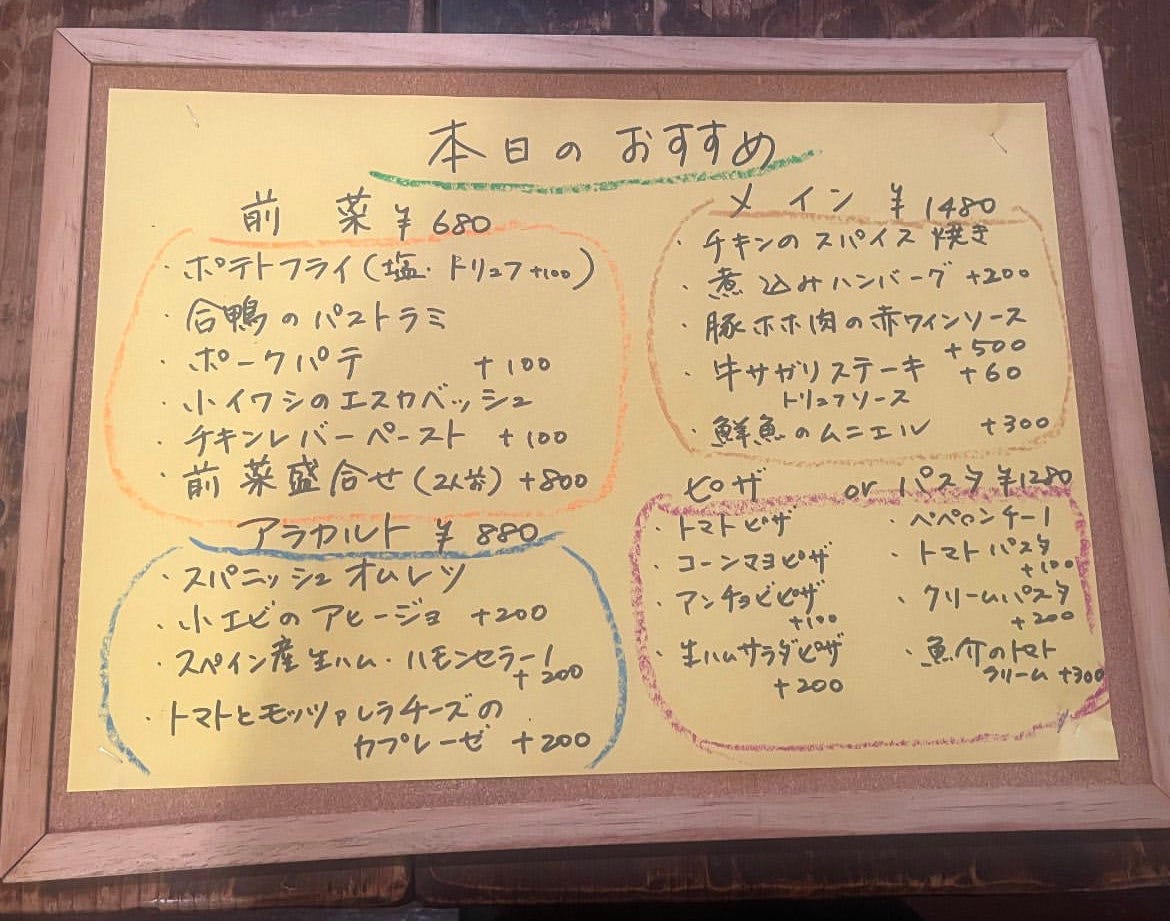 本日のおすすめ
前菜 ¥680
・ポテトフライ(塩・トリュフ+100)
・合鴨のパストラミ
・ポークパテ +100
・小イワシのエスカベッシュ
・チキンレバーペースト +100
・前菜盛合せ(2人前) +800
アラカルト ¥880
・スパニッシュオムレツ
・小エビのアヒージョ +200
・スペイン産生ハム・ハモンセラーノ
+200
・トマトとモッツァレラチーズの
カプレーゼ +200
メイン ¥1480
・チキンのスパイス焼き
・煮込みハンバーグ +200
・豚ホホ肉の赤ワインソース
+500
・牛サガリステーキ +60
トリュフソース
・鮮魚のムニエル +300
ピザ or パスタ ¥1280
・トマトピザ
・コーンマヨピザ
・アンチョビピザ
+100
・生ハムサラダピザ
+200
・ペペロンチーノ
・トマトパスタ
+100
・クリームパスタ
+200
・魚介のトマト
クリーム +300